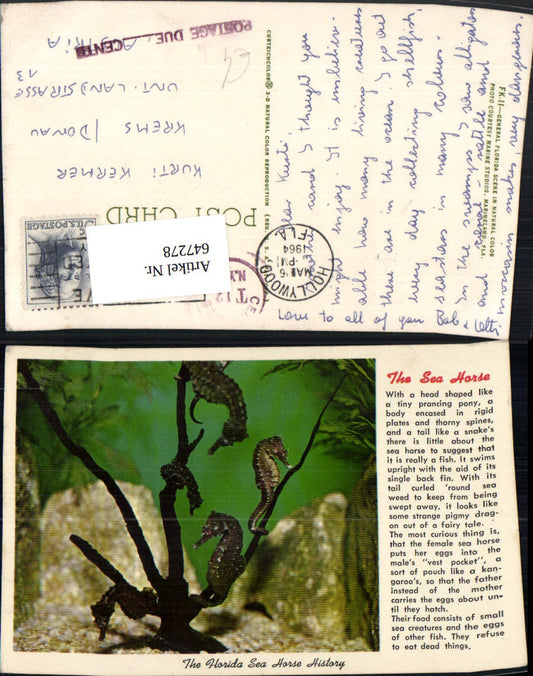 POSTAGE DUE CENTS
AUSTRIA
UNT. LANDSTRASSE
13
KREMS / DONAU
KURTI KERMER
CURTEICHCOLOR® 3-D NATURAL COLOR REPRODUCTION
POST CARD
U.S. POSTAGE
Artikel Nr.
6477278
HOLLYWOOD
MAR 6
PM
1964
FLA.
FK-11—GENERAL FLORIDA SCENE IN NATURAL COLOR
PHOTO COURTESY MARINE STUDIOS, MARINELAND, FLA.
Dear Kurti.
this card I thought you
might enjoy. It is unbeliev-
able how many living creatures
there are in the ocean. I go out
every day collecting shellfish,
seastars in many colours.
In the swamps I saw alligators
and rattle and
moccasin snakes, very dangerous.
Love to all of you Bob &
The Sea Horse
With a head shaped like
a tiny prancing pony, a
body encased in rigid
plates and thorny spines,
and a tail like a snake's
there is little about the
sea horse to suggest that
it is really a fish. It swims
upright with the aid of its
single back fin. With its
tail curled 'round sea
weed to keep from being
swept away, it looks like
some strange pigmy drag-
on out of a fairy tale.
The most curious thing is,
that the female sea horse
puts her eggs into the
male's "vest pocket", a
sort of pouch like a kan-
garoo's, so that the father
instead of the mother
carries the eggs about un-
til they hatch.
Their food consists of small
sea creatures and the eggs
of other fish. They refuse
to eat dead things.
The Florida Sea Horse History